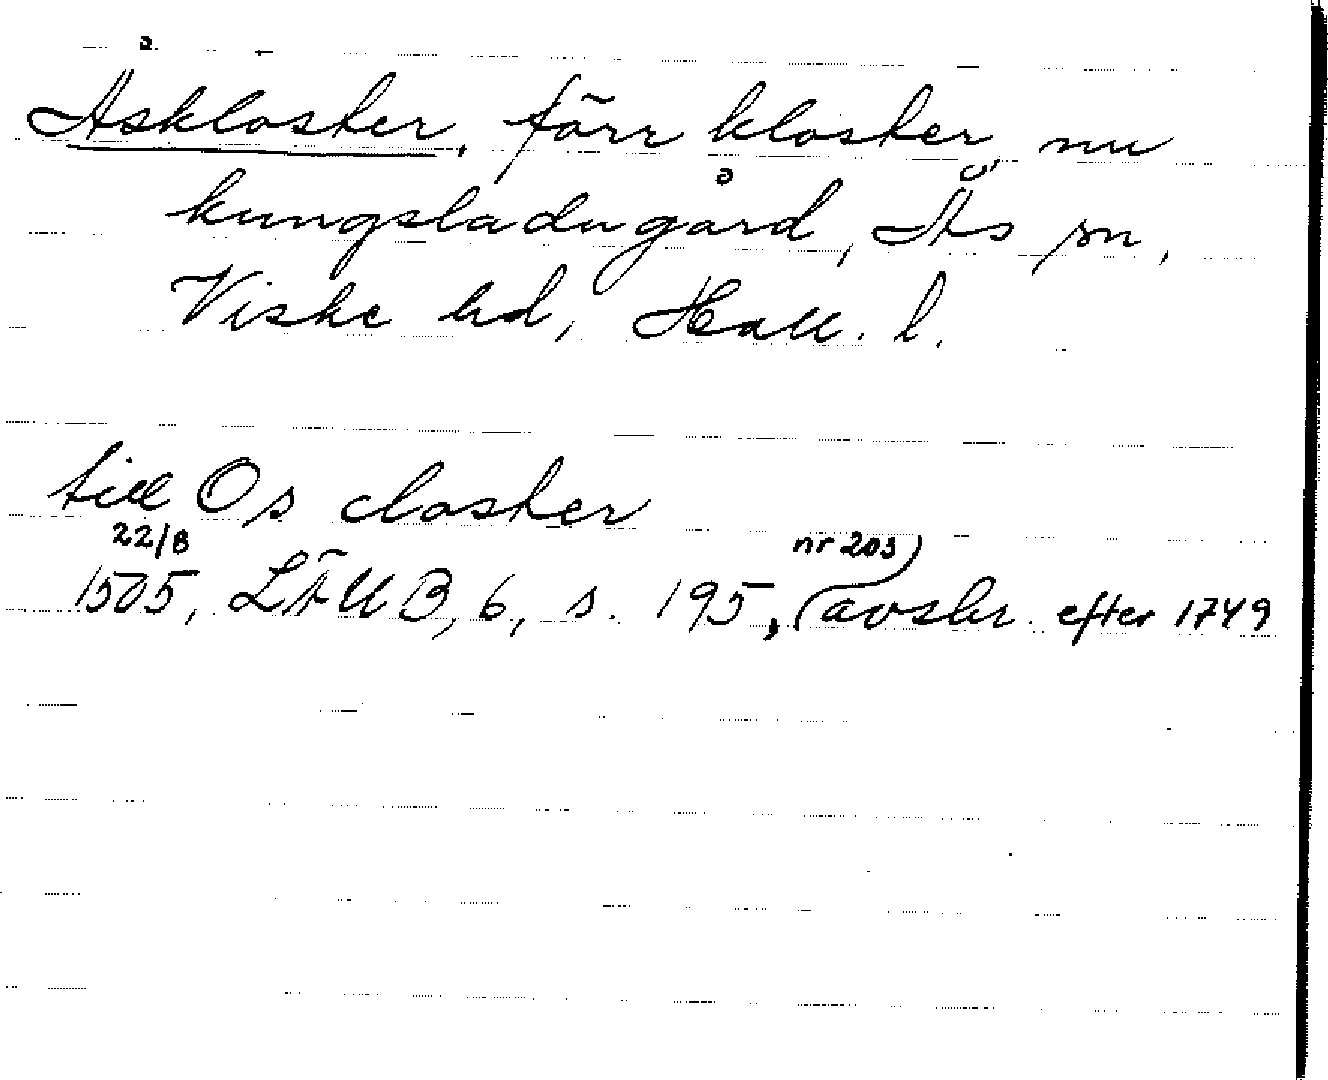 Åskloster, förr kloster, nu
kungsladugård, Ås sn,
Viske hd, Hall. l.
till Os closter
22/8 nr 203
1505, LÄUB, 6, s. 195, (avskr. efter 1749